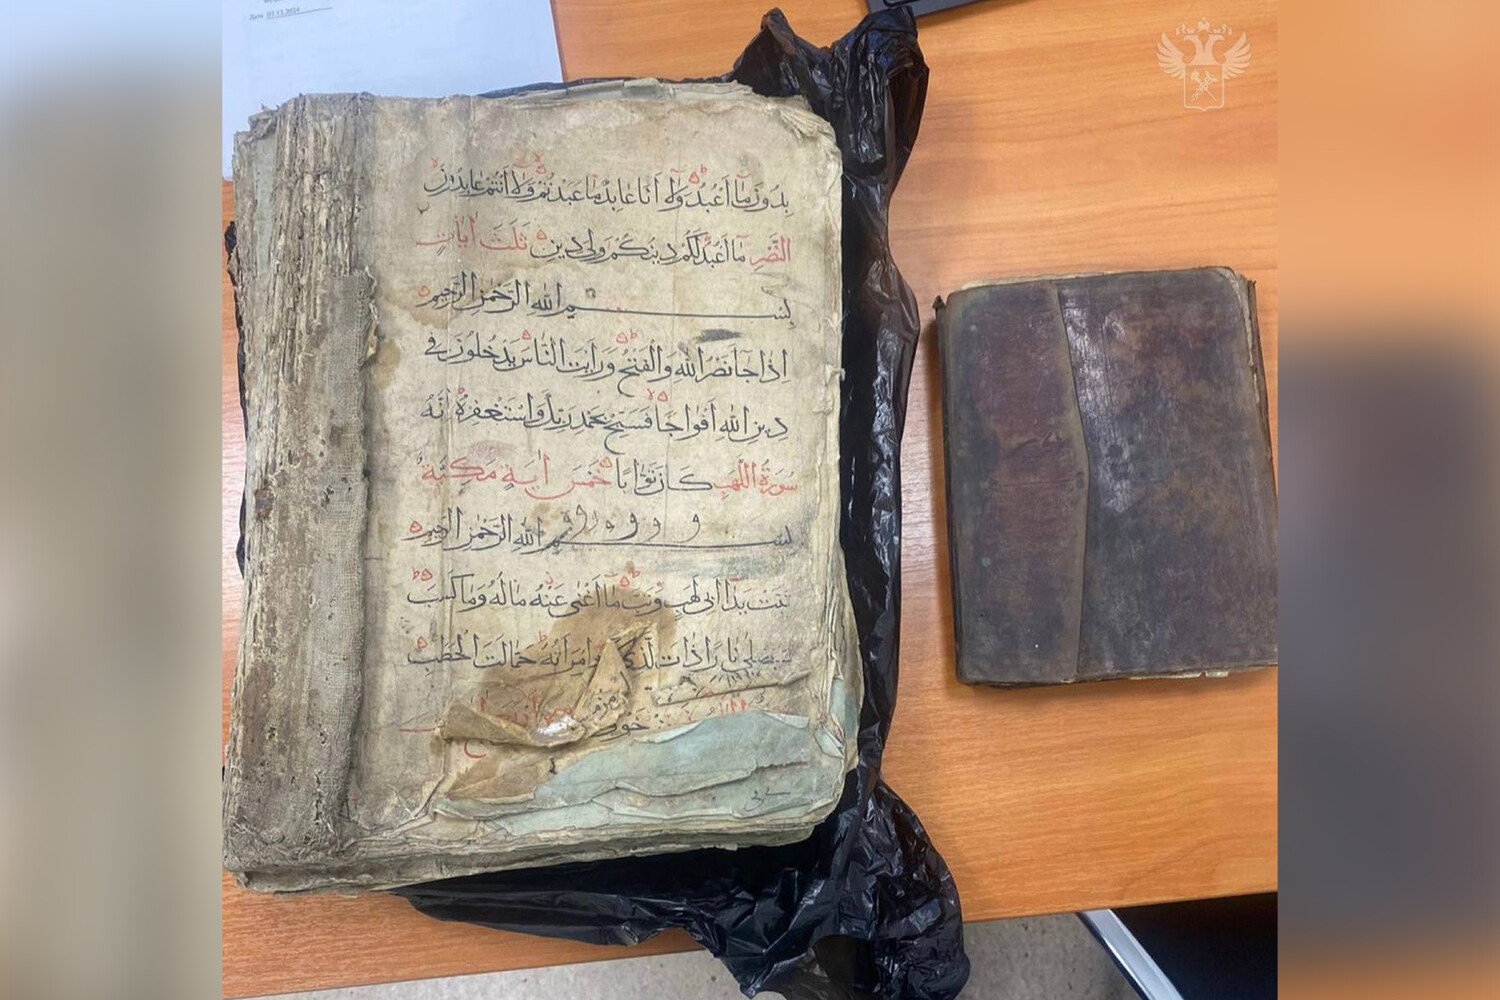 Дата 07.12.2024
بدون ما اعبد ولا انا عابد ما عبدتم ولا انتم عابدون
النصر ما اعبد لكم دينكم ولى دين ثلث ايات
بسم الله الرحمن الرحيم
اذا جا نصر الله والفتح ورايت الناس يدخلون فى
دين الله افواجا فسبح بحمد ربك واستغفره انه
سورة اللهب كان توابا خمس ايه مكية
و و و و و و
بسم الله الرحمن الرحيم
تبت يدا ابى لهب وتب ما اغنى عنه ماله وما كسب
سيصلى نارا ذات وامراته حمالت الحطب